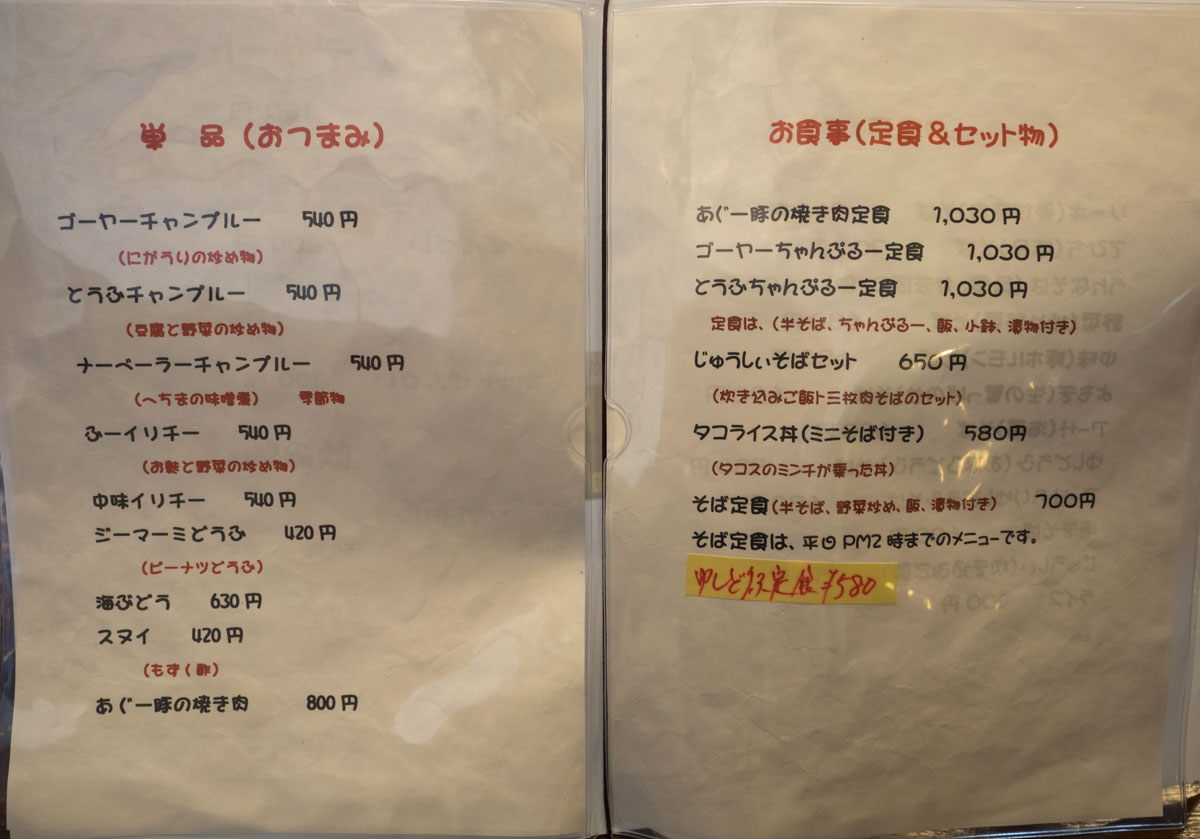 単 品 (おつまみ)
ゴーヤーチャンプルー 540円
(にがうりの炒め物)
とうふチャンプルー 540円
(豆腐と野菜の炒め物)
ナーベーラーチャンプルー 540円
(へちまの味噌煮) 季節物
ふーイリチー 540円
(お麩と野菜の炒め物)
中味イリチー 540円
ジーマーミどうふ 420円
(ピーナツどうふ)
海ぶどう 630円
スヌイ 420円
(もずく酢)
あぐー豚の焼き肉 800円
お食事(定食&セット物)
あぐー豚の焼き肉定食 1,030円
ゴーヤーちゃんぷるー定食 1,030円
とうふちゃんぷるー定食 1,030円
定食は、(半そば、ちゃんぷるー、飯、小鉢、漬物付き)
じゅうしぃそばセット 650円
(炊き込みご飯ト三枚肉そばのセット)
タコライス丼(ミニそば付き) 580円
(タコスのミンチが乗った丼)
そば定食(半そば、野菜炒め、飯、漬物付き) 700円
そば定食は、平日PM2時までのメニューです。
ゆしどうふ定食 ¥580